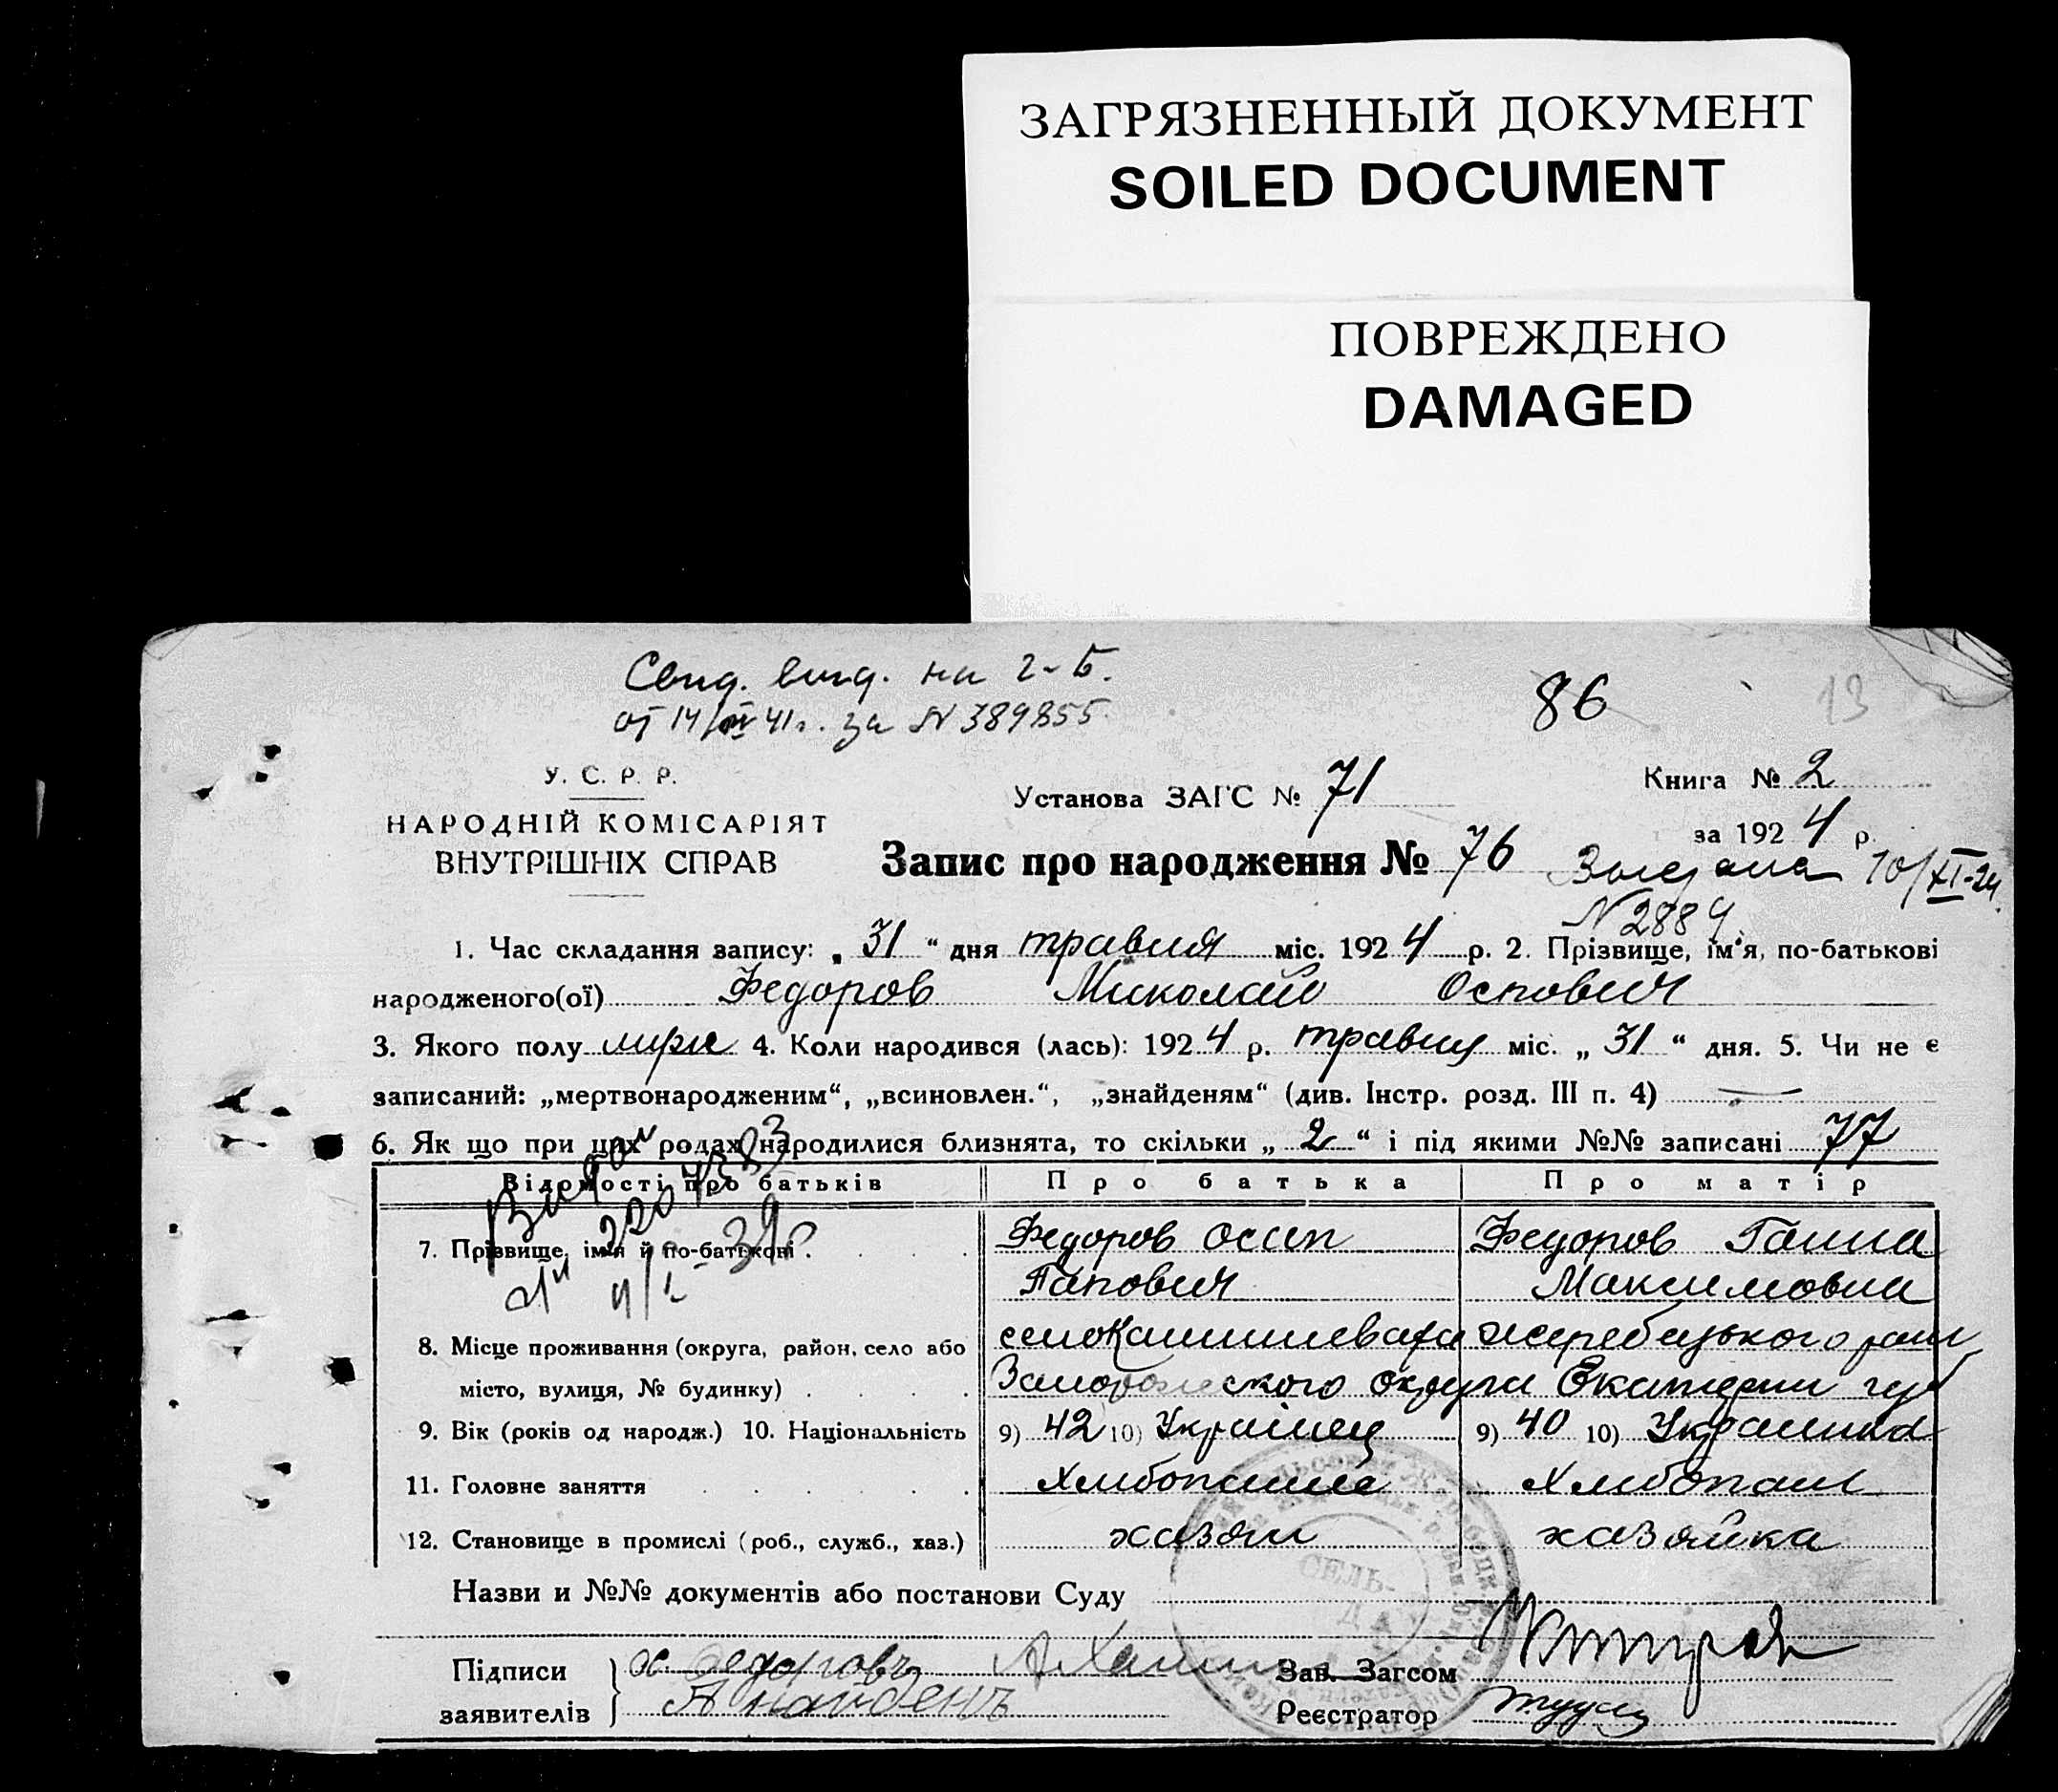 ЗАГРЯЗНЕННЫЙ ДОКУМЕНТ
SOILED DOCUMENT
ПОВРЕЖДЕНО
DAMAGED
Свид. выд. на 2-Б.
от 14/ 41г. за № 389855.
86
13
У. С. Р. Р.
НАРОДНІЙ КОМІСАРІЯТ
ВНУТРІШНІХ СПРАВ
Установа ЗАГС № 71
Книга № 2
за 1924 р.
Запис про народження № 76
10/XI-24
N 2889
1. Час складання запису: „31“ дня травня міс. 1924 р. 2. Прізвище, ім'я, по-батькові
народженого(ої) Федоров Миколай Оспович
3. Якого полу 4. Коли народився (лась): 1924 р. травня міс. „31“ дня. 5. Чи не є
записаний: „мертвонародженим“, „всиновлен.“, „знайденям“ (див. Інстр. розд. III п. 4) —
6. Як що при цих родах народилися близнята, то скільки „2“ і під якими №№ записані 77
Відомості про батьків Про батька Про матір
7. Прізвище, ім'я й по-батькові . . . Федоров Осип Федоров Ганна
Тапович Максимовна
8. Місце проживання (округа, район, село або село жеребецького
місто, вулиця, № будинку) . . . . округи Екатерин губ
9. Вік (років од народж.) 10. Національність 9) 42 10) Українец 9) 40 10) Українка
11. Головне заняття . . . . . . Хлибопаш
12. Становище в промислі (роб., служб., хаз.) хазяин хазяйка
Назви и №№ документів або постанови Суду
СЕЛЬ-
Підписи Федоровъ Зав. Загсом
заявителів Найденъ Реєстратор